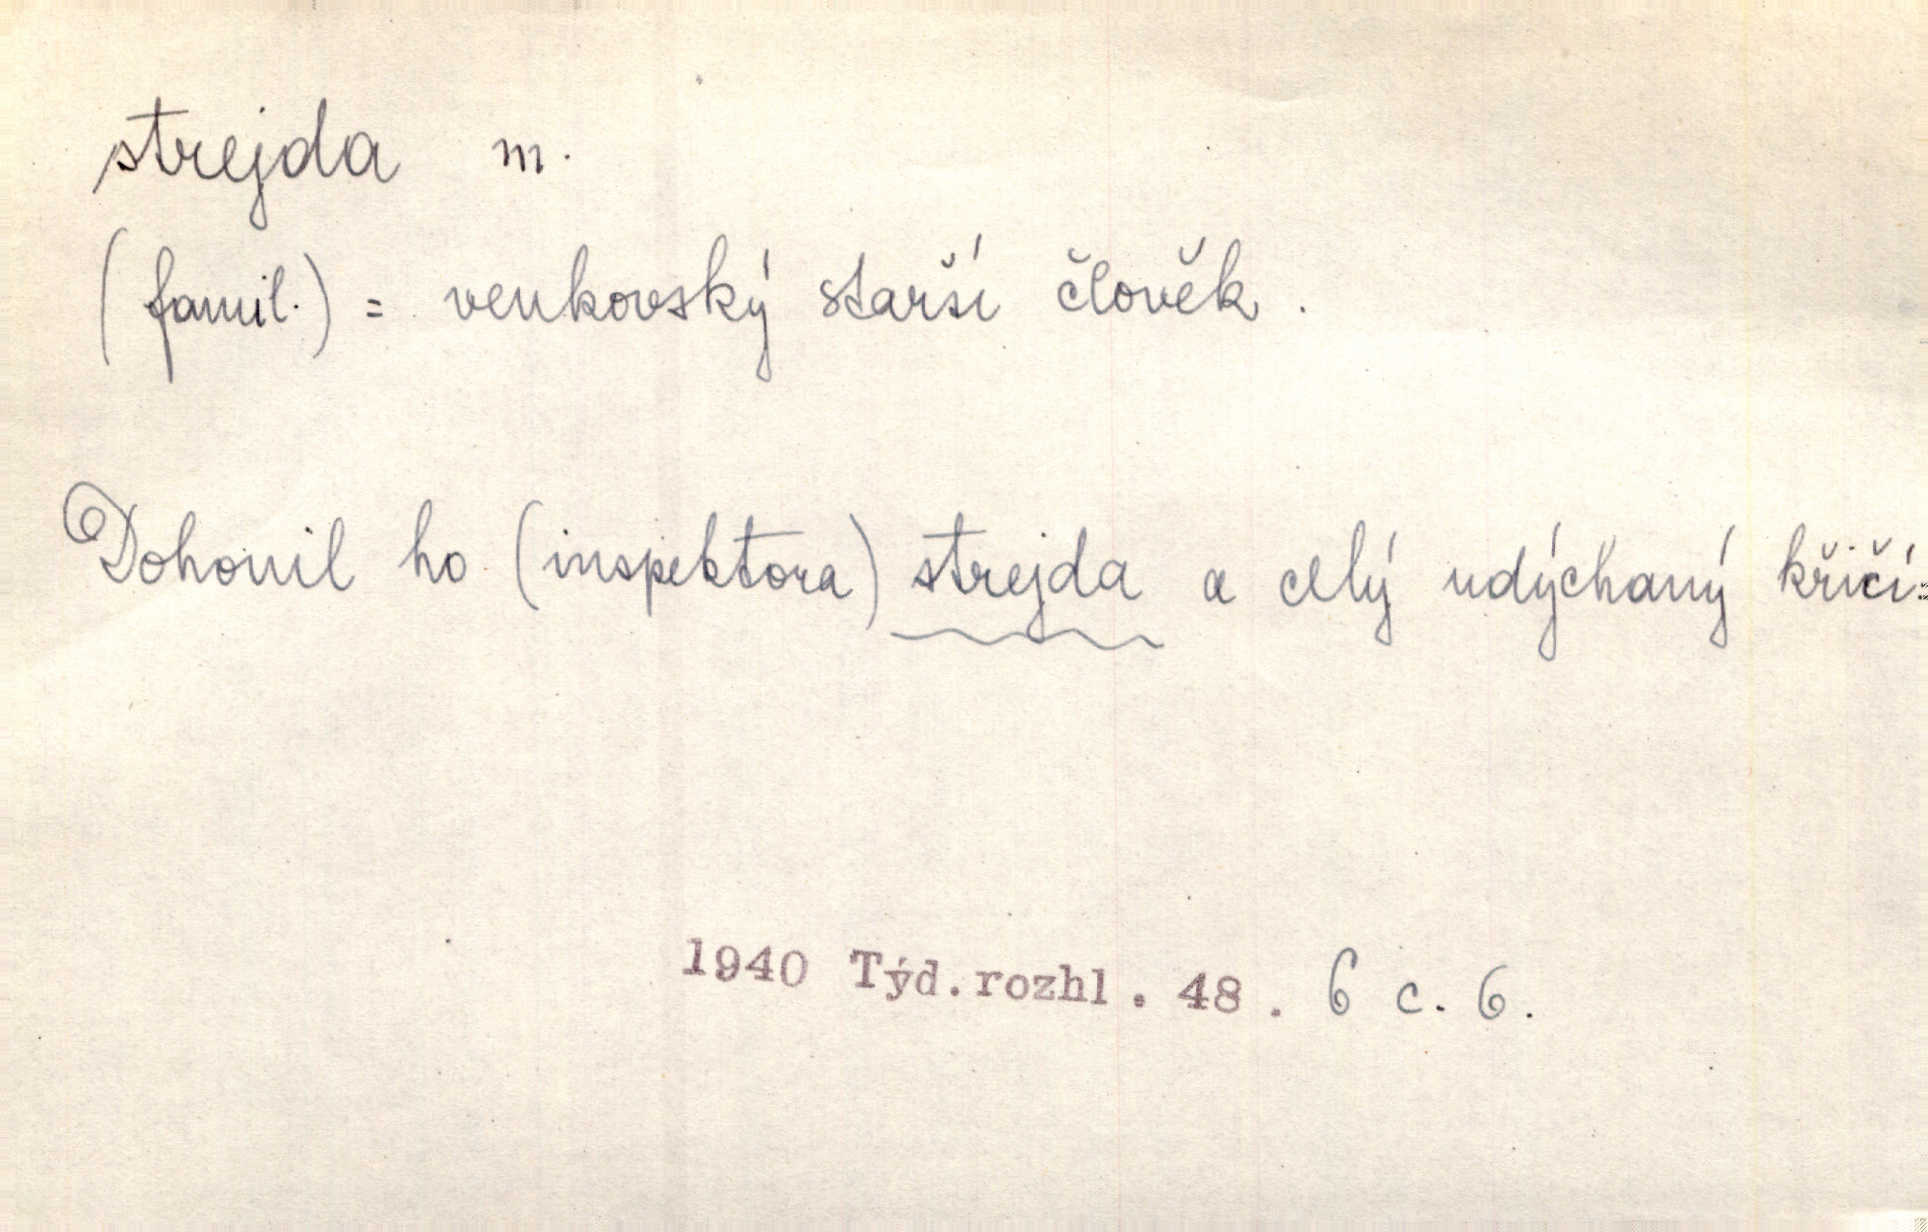 strejda m.
(famil.) = venkovský starší člověk.
Dohonil ho (inspektora) strejda a celý udýchaný křičí:
1940 Týd.rozhl. 48. 6 c. 6.